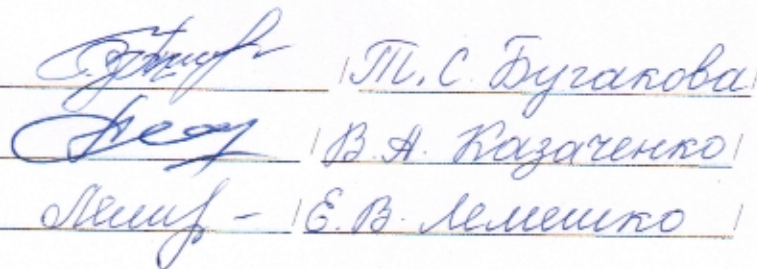 /Т.С. Бугакова/
/В.А. Казаченко/
/Е.В. Лемешко/